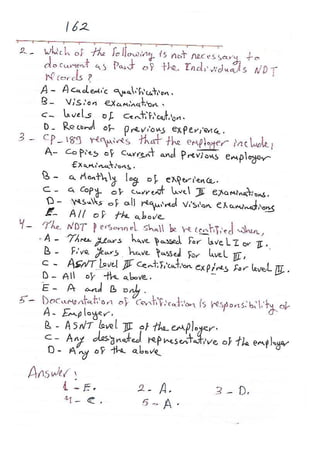 162
2- Which of the following is not necessary to
document as Part of the Individuals NDT
records?
A- Academic qualification.
B- Vision examination.
C- levels of certification.
D- Record of previous experience.
3- CP-189 requires that the employer include;
A- Copies of current and previous employer
examinations.
B- a Monthly log of experience.
C- a copy of current level III examinations.
D- results of all required vision examinations
E- All of the above
4- The NDT personnel shall be recertified when,
A- Three years have passed for level I or II.
B- Five years have passed for level III.
C- ASNT level III certification expires for level III.
D- All of the above.
E- A and B only.
5- Documentation of certification is responsibility of
A- Employer.
B- ASNT level III of the employer.
C- Any designated representative of the employer
D- Any of the above
Answer:
1-E. 2-A. 3-D.
4-C. 5-A.